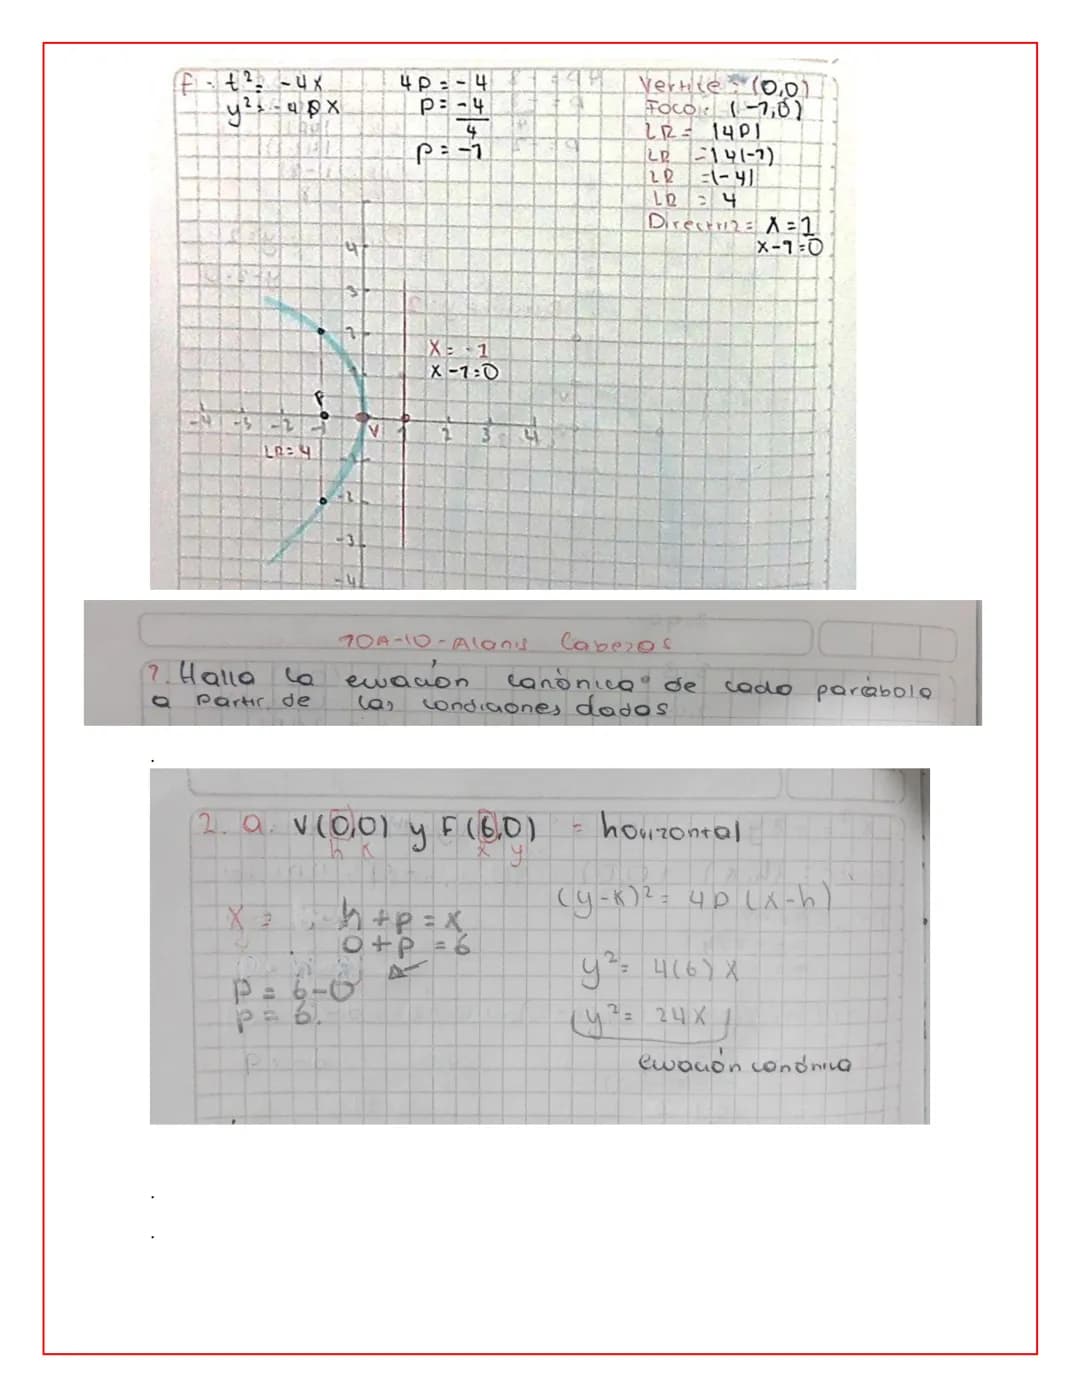 f. t² = -4x
y² = -4px
4P = -4
P = -4
4
P = -1
Vertice: (0,0)
Foco: (-1,0)
LR = |4P|
LR = |4(-1)
LR = |-4|
LR = 4
Directriz = x = 1
x-1=0
4
3
2
1
x = -1
x-1=0
F
-4 -3 -2 -1 V 1 2 3 4
LR=4
-1
-2
-3
-4
10A-10-Alanis Cabezas
2. Halla la ecuación canónica de cada parábola
a partir de las condiciones dadas
2. a. V(0,0) y F(6,0) = horizontal
h k x y
(y-k)² = 4P(x-h)
x = h+p = x
0+p = 6
y² = 4(6)x
P = 6-0
P = 6.
y² = 24x
ecuación canónica